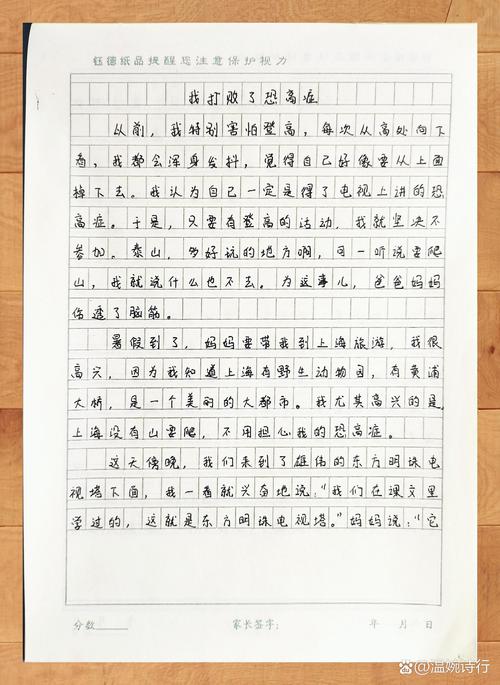 钰德纸品提醒您注意保护视力
我打败了恐高症
以前，我特别害怕登高，每次从高处向下
看，我都会浑身发抖，觉得自己好像要从上面
掉下去。我认为自己一定是得了电视上讲的恐
高症。于是，只要有登高的活动，我就坚决不
参加。泰山，多好说的地方啊，可一听说要爬
山，我就说什么也不去。为这事儿，爸爸妈妈
伤透了脑筋。
暑假到了，妈妈要带我到上海旅游，我很
高兴，因为我知道上海有野生动物园，有黄浦
大桥，是一个美丽的大都市。我尤其高兴的是
上海没有山要爬，不用担心我的恐高症。
这天傍晚，我们来到了雄伟的东方明珠电
视塔下面，我一看就兴奋地说：“我们在课文里
学过的，这就是东方明珠电视塔。”妈妈说：“它
分数 家长签字： 年 月 日
@温婉诗行